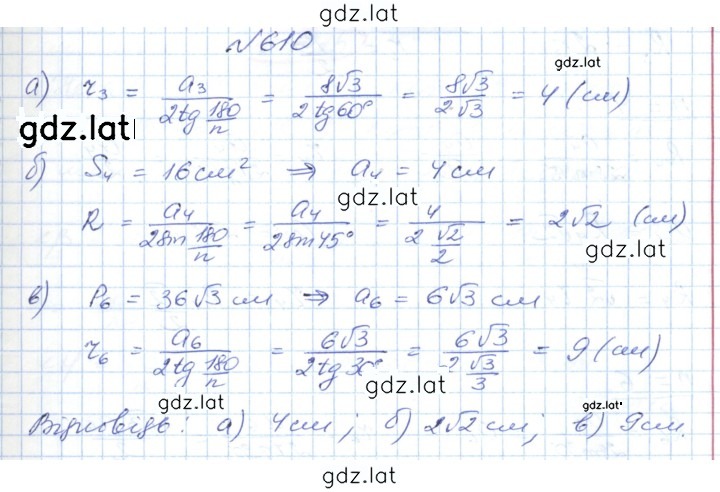 gdz.lat
№610
gdz.lat
а) r₃ = a₃ / (2tg 180/n) = 8√3 / (2tg60°) = 8√3 / (2√3) = 4 (см)
gdz.lat
б) S₄ = 16 см² ⇒ a₄ = 4 см
gdz.lat
R = a₄ / (2sin 180/n) = a₄ / (2sin45°) = 4 / (2 √2/2) = 2√2 (см)
gdz.lat
в) P₆ = 36√3 см ⇒ a₆ = 6√3 см
r₆ = a₆ / (2tg 180/n) = 6√3 / (2tg30°) = 6√3 / (2 √3/3) = 9 (см)
gdz.lat
gdz.lat gdz.lat
Відповідь: а) 4 см; б) 2√2 см; в) 9 см.
gdz.lat